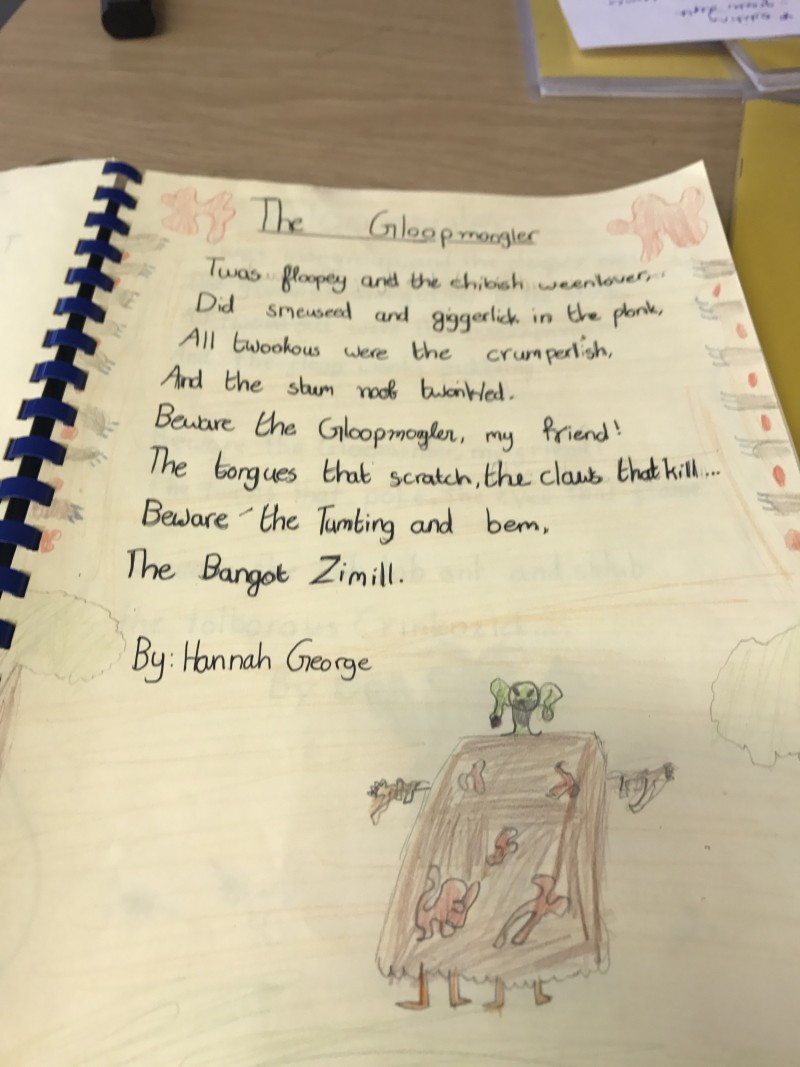 The Gloopmoogler
Twas floopey and the chibish weenlover,
Did smeuseed and giggerlick in the plonk,
All twookous were the crumperlish,
And the stum noof twonkled.
Beware the Gloopmogler, my friend!
The tongues that scratch, the claws that kill...
Beware the Tumting and bem,
The Bangot Zimill.
By: Hannah George